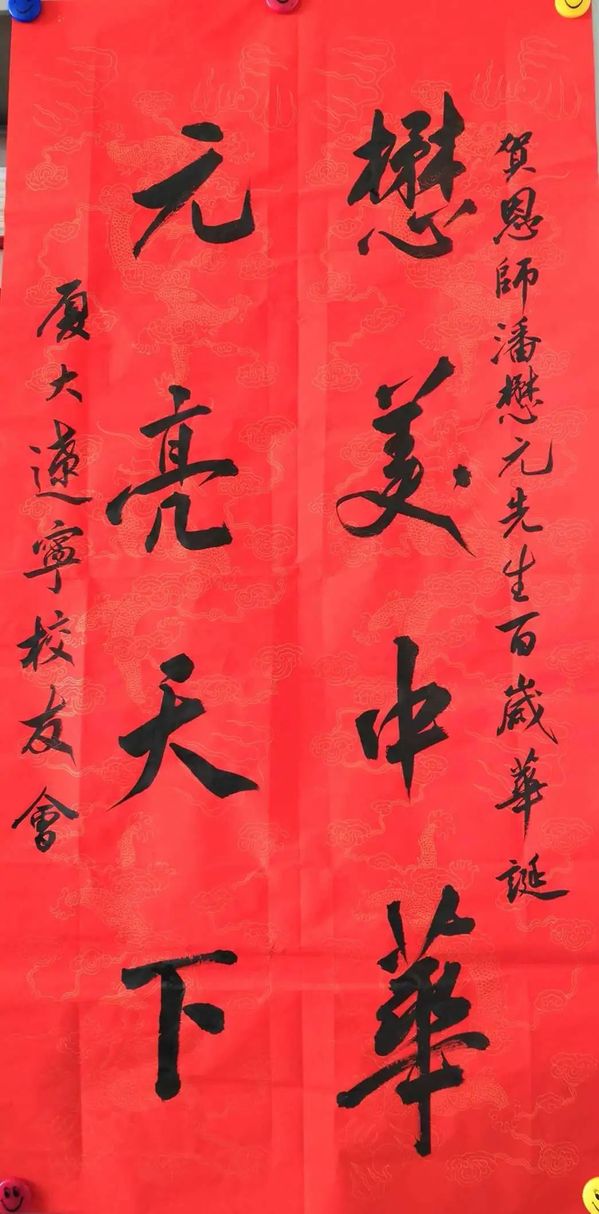 賀恩師潘懋元先生百歲華誕
懋美中華
元亮天下
厦大遼寧校友會